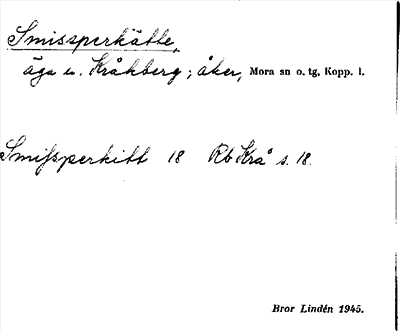 Smissperkätte,
äga u. Kråkberg; åker, Mora sn o. tg, Kopp. l.
Smissperkitt 18 Rb Krå s. 18.
Bror Lindén 1945.